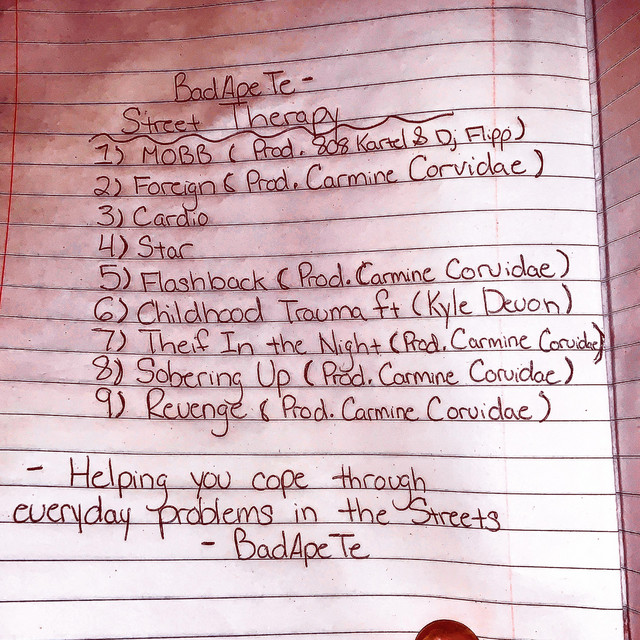 BadApeTe -
Street Therapy
1) MOBB ( Prod. 808 Kartel & Dj Flippi)
2) Foreign ( Prod. Carmine Corvidae )
3) Cardio
4) Star
5) Flashback ( Prod. Carmine Corvidae )
6) Childhood Trauma ft (Kyle Devon)
7) Theif In the Night (Prod. Carmine Corvidae)
8) Sobering Up ( Prod. Carmine Corvidae )
9) Revenge ( Prod. Carmine Corvidae )
- Helping you cope through
everyday problems in the Streets
- BadApeTe